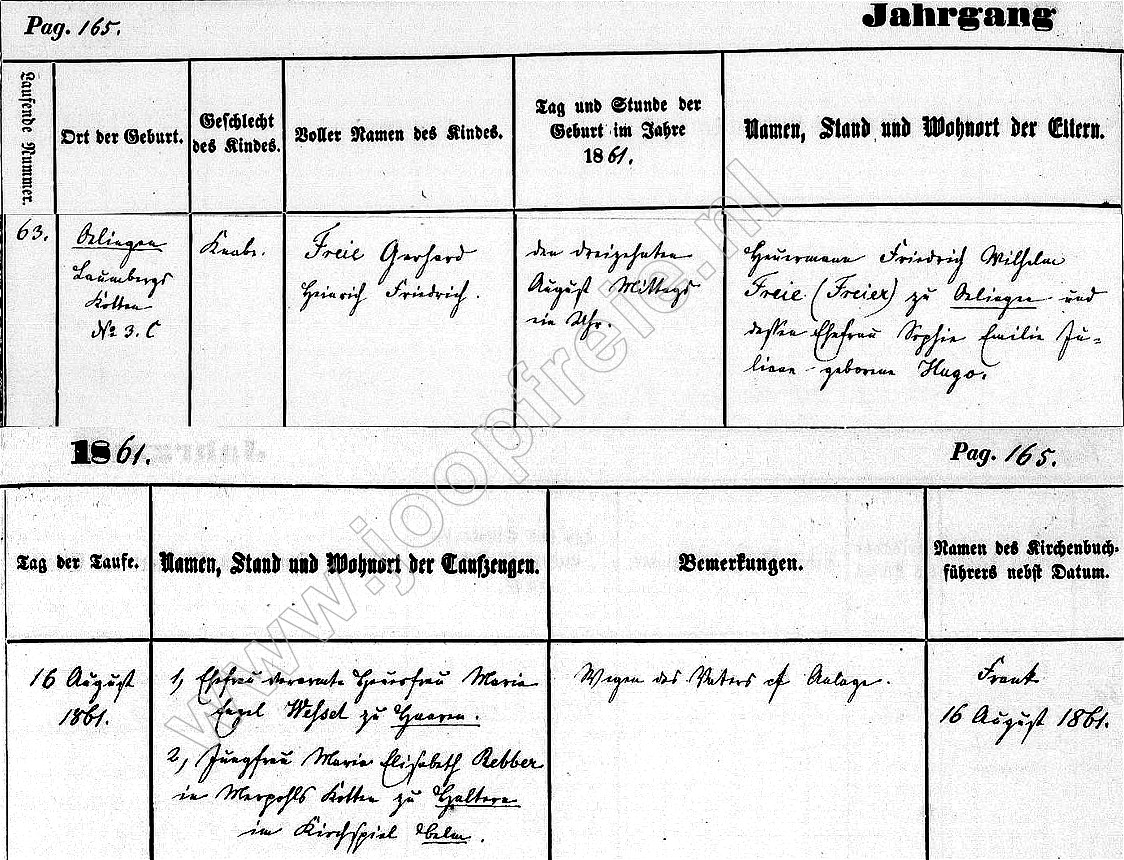 Pag. 165.
Jahrgang
Laufende Nummer.
Ort der Geburt.
Geschlecht
des Kindes.
Voller Namen des Kindes.
Tag und Stunde der
Geburt im Jahre
1861.
Namen, Stand und Wohnort der Eltern.
63.
Oelingen
Laumbergs
Kotten
No 3. C
Knabe.
Freie Gerhard
Heinrich Friedrich.
den dreizehnten
August Mittags
ein Uhr.
Heuermann Friedrich Wilhelm
Freie (Freier) zu Oelingen und
dessen Ehefrau Sophie Emilie Ju-
liane geborene Hugo.
1861.
Pag. 165.
Tag der Taufe.
Namen, Stand und Wohnort der Taufzeugen.
Bemerkungen.
Namen des Kirchenbuch-
führers nebst Datum.
16 August
1861.
1, Ehefrau Maria
Engel Wessel zu Haaren.
2, Jungfrau Maria Elisabeth Rebber
in Kotten zu Haltern
im Kirchspiel Belm.
Wegen des Vaters cf Anlage.
Frank
16 August 1861.
www.joopfreie.nl